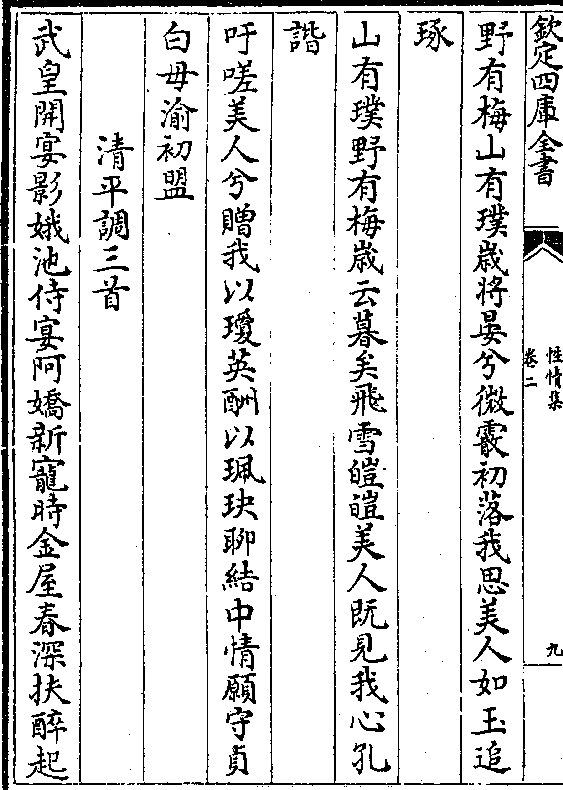 欽定四庫全書
性情集
卷二
九
野有梅山有璞歲將晏兮微霰初落我思美人如玉追
琢
山有璞野有梅歲云暮矣飛雪皚皚美人既見我心孔
諧
吁嗟美人兮贈我以瓊英酬以珮玦聊結中情願守貞
白毋渝初盟
清平調三首
武皇開宴影娥池侍宴阿嬌新寵時金屋春深扶醉起